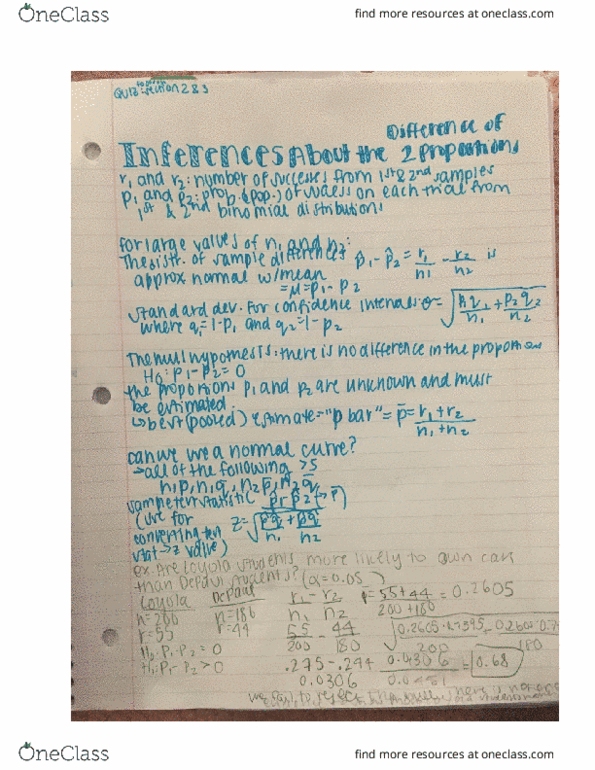 OneClass
find more resources at oneclass.com
QUIZ: section 283
Difference of
Inferences About the 2 Proportions
r1 and r2: number of successes from 1st & 2nd samples
p1 and p2: prob. (pop.) of success on each trial from
1st & 2nd binomial distributions
for large values of n1 and n2:
The distr. of sample differences p̂1-p̂2 = r1/n1 - r2/n2 is
approx normal w/mean
=μ=p1-p2
standard dev. for confidence intervals: σ= √(p1q1/n1 + p2q2/n2)
where q1=1-p1 and q2=1-p2
The null hypothesis: there is no difference in the proportions
H0: p1-p2=0
the proportions p1 and p2 are unknown and must
be estimated
↳ best (pooled) estimate="p bar"= p̄= r1+r2/n1+n2
can we use a normal curve?
→ all of the following >5
n1p̄, n1q̄, n2p̄, n2q̄
sample test statistic p̂1-p̂2
(use for
converting test
stat→z value)
z= √(p̄q̄/n1 + p̄q̄/n2)
ex. Are Loyola students more likely to own cars
than DePaul students? (α=0.05)
Loyola DePaul
n=200 n=180
r=55 r=44
H0: P1-P2=0
r1/n1 - r2/n2
55/200 - 44/180
.275-.244
0.0306
55+44/200+180 = 0.2605
0.0306
= 0.68
we fail to reject
OneClass
find more resources at oneclass.com